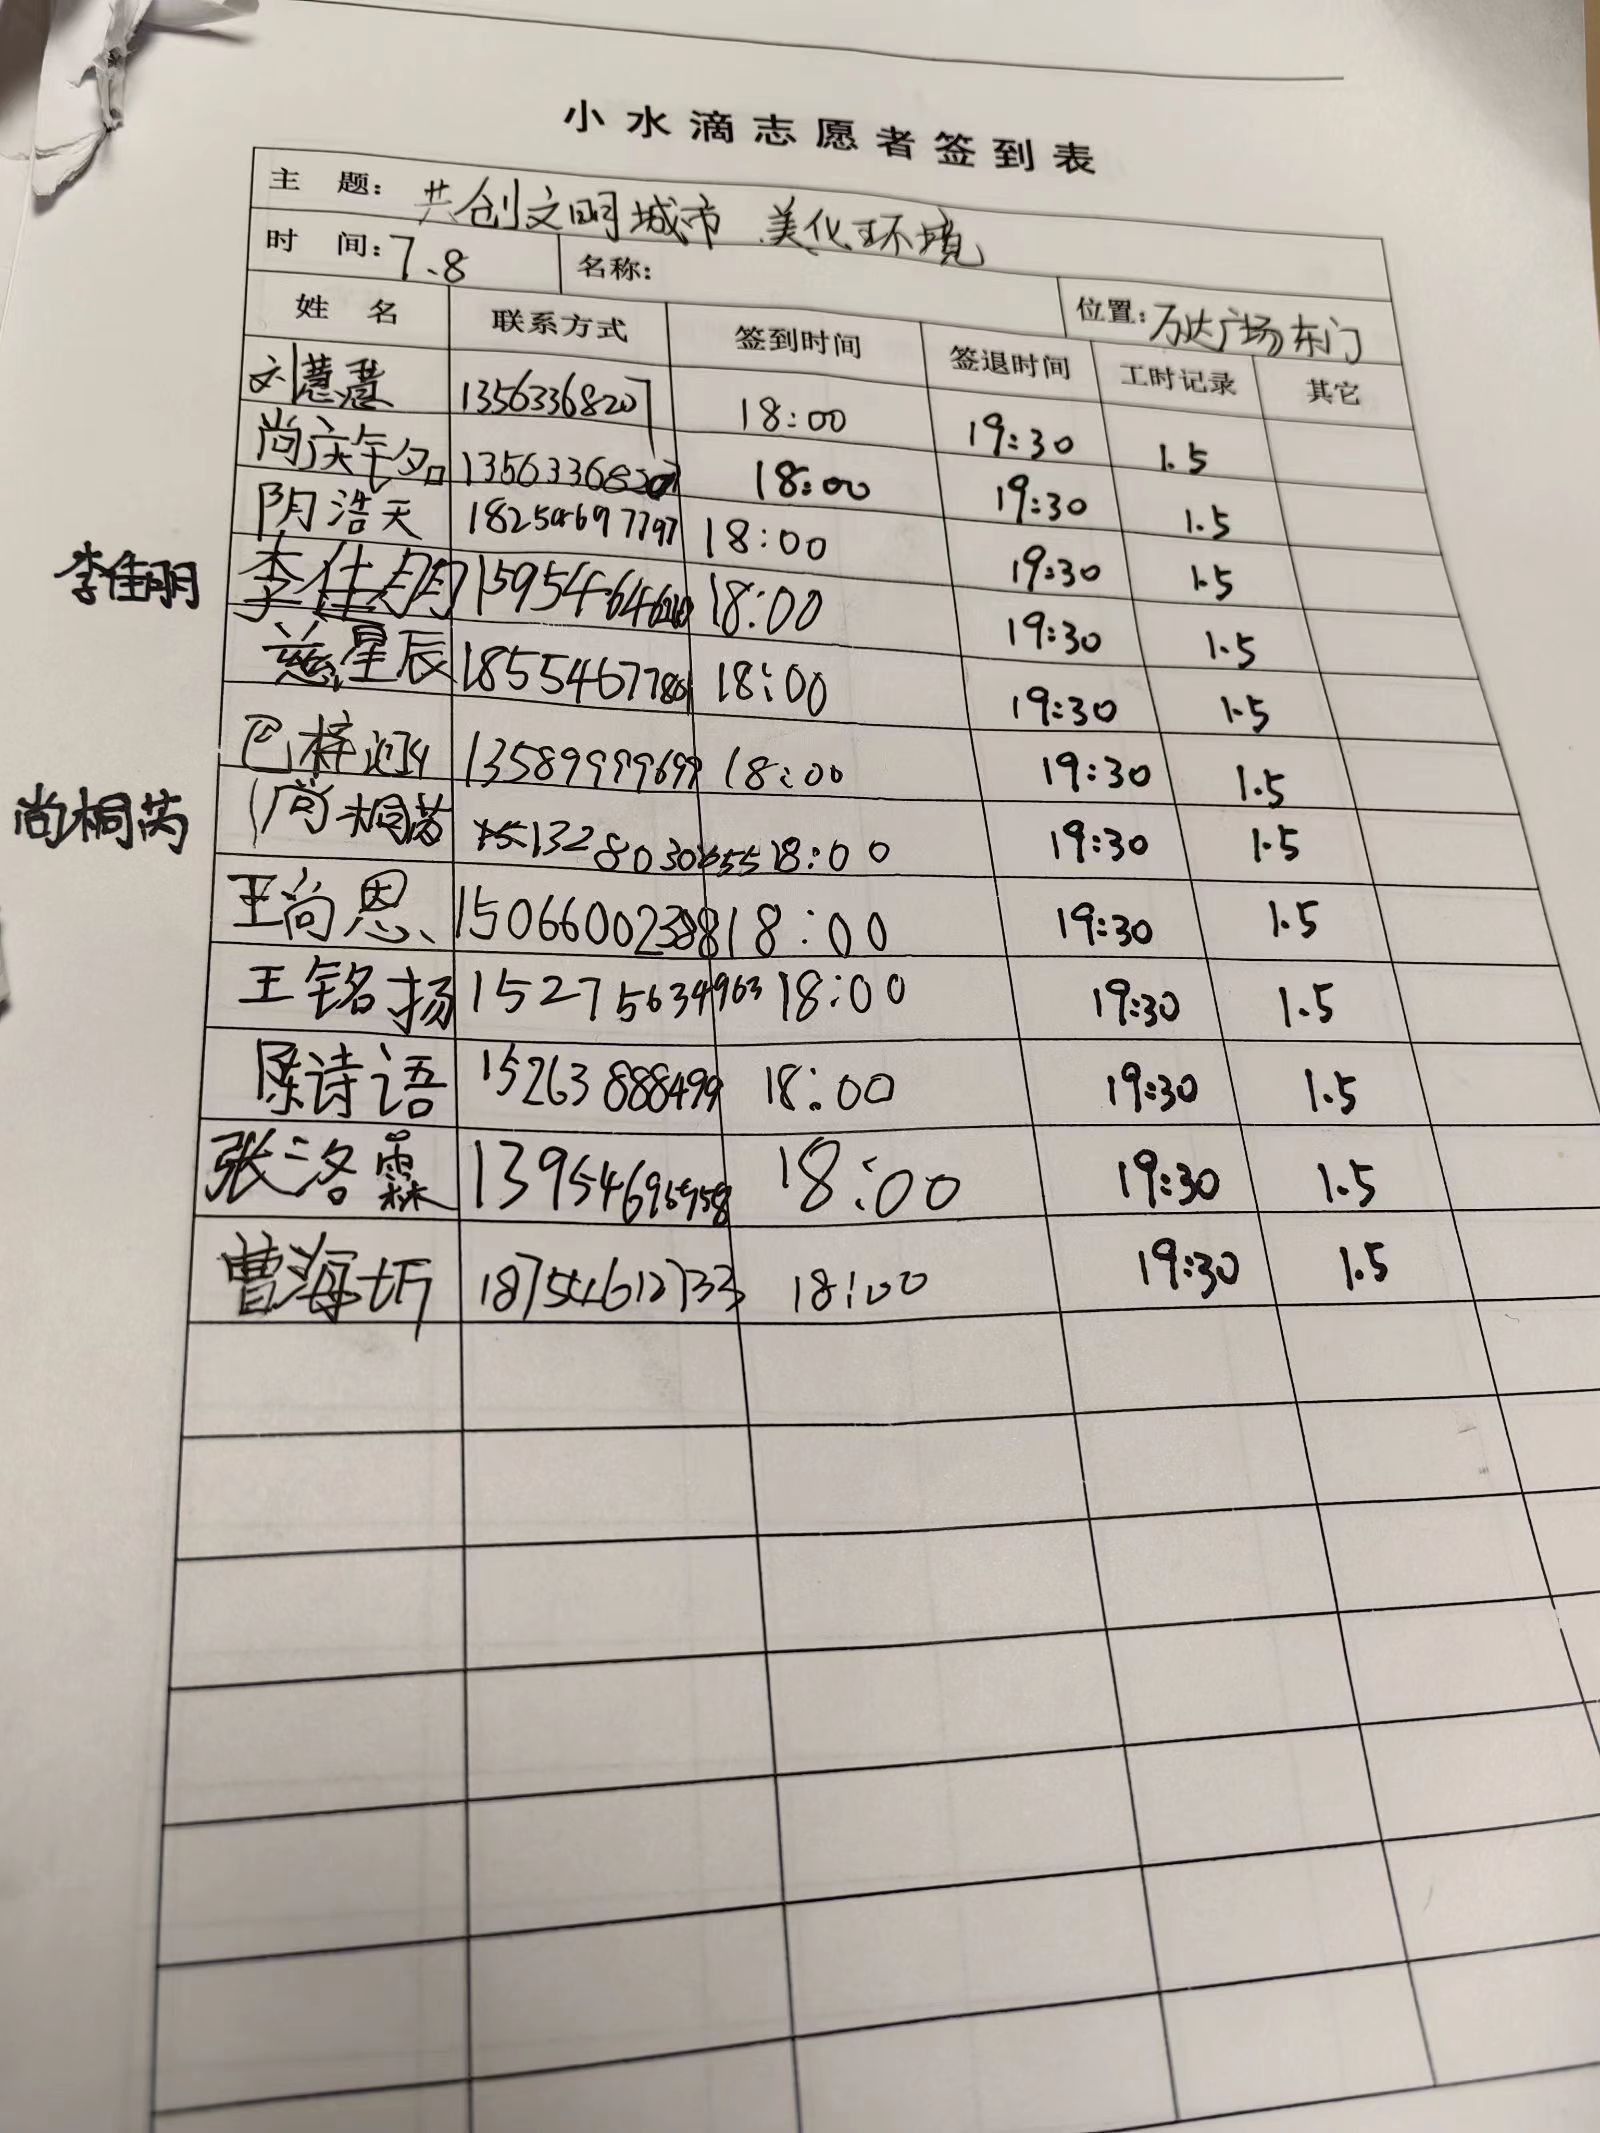 小水滴志愿者签到表
主 题: 共创文明城市 美化环境
时 间: 7.8 名称: 位置: 万达广场东门
姓 名 联系方式 签到时间 签退时间 工时记录 其它
刘慧慧 13563368207 18:00 19:30 1.5
尚庆铭 13563368207 18:00 19:30 1.5
阴浩天 18254697797 18:00 19:30 1.5
李佳明 李佳明 18:00 19:30 1.5
慈星辰 18:00 19:30 1.5
巴梓 13589999699 18:00 19:30 1.5
尚桐芮 尚桐芮 18:00 19:30 1.5
王尚恩 18:00 19:30 1.5
王铭扬 15275634963 18:00 19:30 1.5
陈诗语 15263888499 18:00 19:30 1.5
张洛霖 13954695958 18:00 19:30 1.5
曹海圻 18754612733 18:00 19:30 1.5